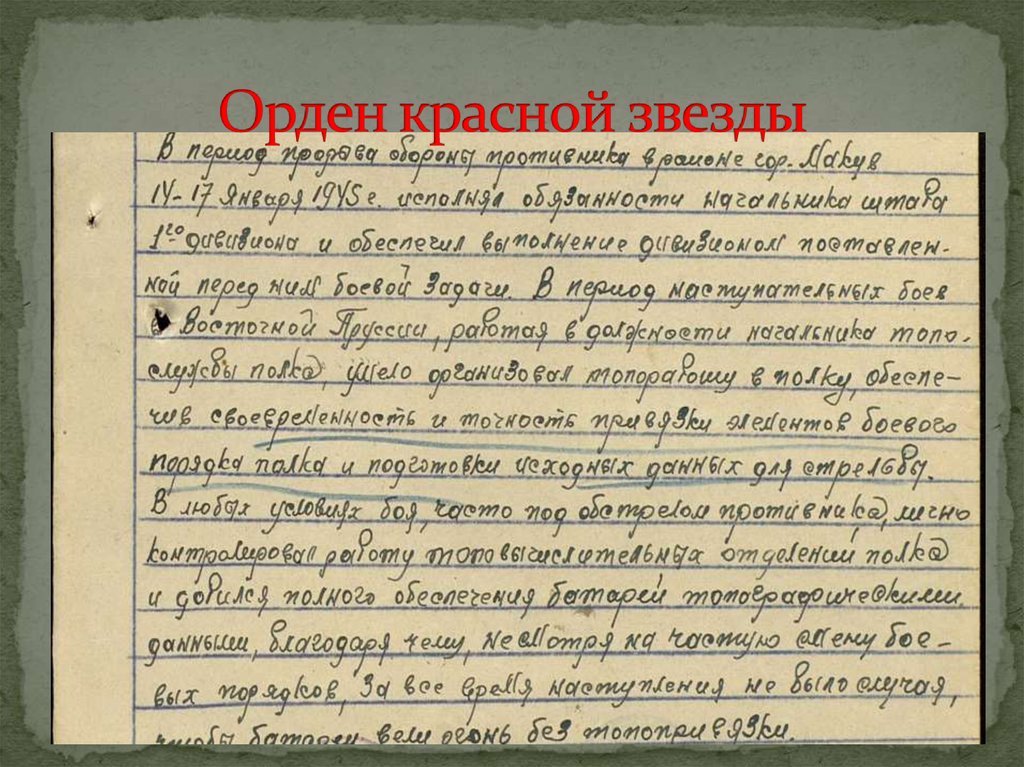 Орден красной звезды
В период прорыва обороны противника в районе гор. Макув
14-17 Января 1945 г. исполнял обязанности начальника штаба
1го дивизиона и обеспечил выполнение дивизионом поставлен-
ной перед ним боевой задачи. В период наступательных боев
в Восточной Пруссии, работая в должности начальника топо-
службы полка, умело организовал топоработу в полку, обеспе-
чив своевременность и точность привязки элементов боевого
порядка полка и подготовки исходных данных для стрельбы.
В любых условиях боя, часто под обстрелом противника, лично
контролировал работу топовычислительных отделений полка
и добился полного обеспечения батарей топографическими
данными, благодаря чему, несмотря на частую смену бое-
вых порядков, за все время наступления не было случая,
чтобы батареи вели огонь без топопривязки.